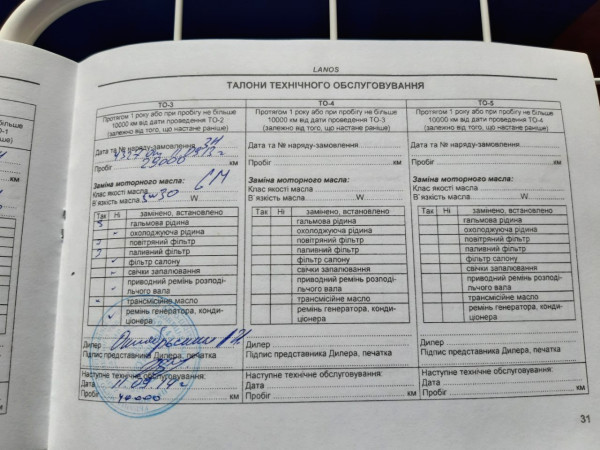 LANOS
ТАЛОНИ ТЕХНІЧНОГО ОБСЛУГОВУВАННЯ
ТО-3
Протягом 1 року або при пробігу не більше
10000 км від дати проведення ТО-2
(залежно від того, що настане раніше)
Дата та № наряду-замовлення
Пробіг 29000 км
Заміна моторного масла:
Клас якості масла СМ
В`язкість масла 5w30 W
Так Ні замінено, встановлено
гальмова рідина
охолоджуюча рідина
повітряний фільтр
паливний фільтр
фільтр салону
свічки запалювання
приводний ремінь розподі-
льчого вала
трансмісійне масло
ремінь генератора, конди-
ціонера
Дилер
Підпис представника Дилера, печатка
Наступне технічне обслуговування:
Дата 11.09.14 г
Пробіг 40000 км
ТО-4
Протягом 1 року або при пробігу не більше
10000 км від дати проведення ТО-3
(залежно від того, що настане раніше)
Дата та № наряду-замовлення
Пробіг км
Заміна моторного масла:
Клас якості масла
В`язкість масла W
Так Ні замінено, встановлено
гальмова рідина
охолоджуюча рідина
повітряний фільтр
паливний фільтр
фільтр салону
свічки запалювання
приводний ремінь розподі-
льчого вала
трансмісійне масло
ремінь генератора, конди-
ціонера
Дилер
Підпис представника Дилера, печатка
Наступне технічне обслуговування:
Дата
Пробіг км
ТО-5
Протягом 1 року або при пробігу не більше
10000 км від дати проведення ТО-4
(залежно від того, що настане раніше)
Дата та № наряду-замовлення
Пробіг км
Заміна моторного масла:
Клас якості масла
В`язкість масла W
Так Ні замінено, встановлено
гальмова рідина
охолоджуюча рідина
повітряний фільтр
паливний фільтр
фільтр салону
свічки запалювання
приводний ремінь розподі-
льчого вала
трансмісійне масло
ремінь генератора, конди-
ціонера
Дилер
Підпис представника Дилера, печатка
Наступне технічне обслуговування:
Дата
Пробіг км
31